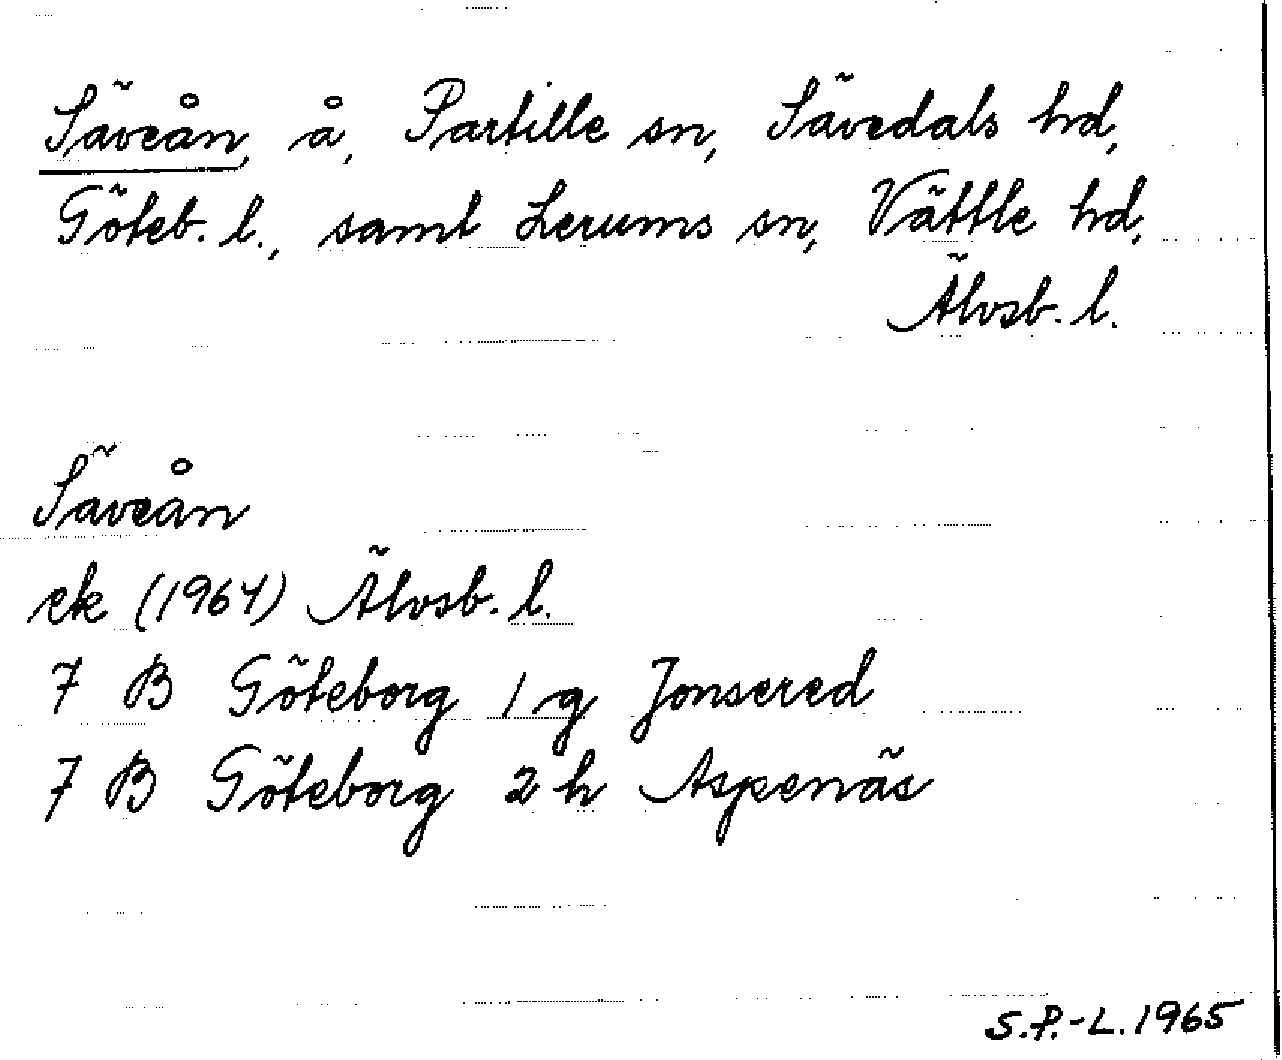 Säveån, å, Partille sn, Sävedals hd,
Göteb. l., samt Lerums sn, Vättle hd,
Älvsb. l.
Säveån
ek (1964) Älvsb. l.
7 B Göteborg 1 g Jonsered
7 B Göteborg 2 h Aspenäs
S.P.-L. 1965